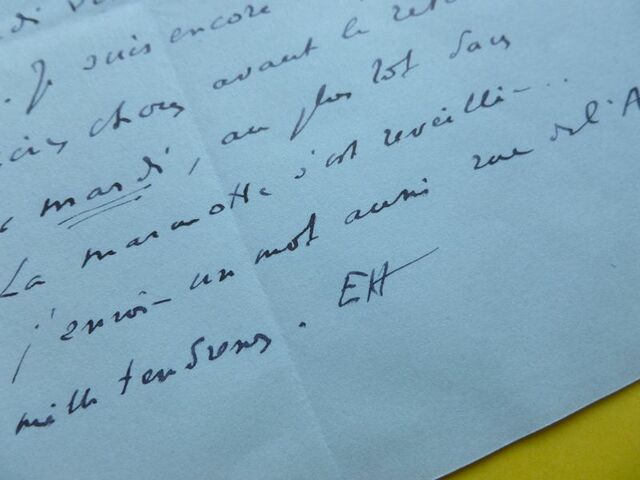 . Je suis encore
choses avant le
mardi, au plus tôt dans
La marmotte s'est réveillée...
j'envoie un mot aussi rue de l'A
mille tendresses. EH